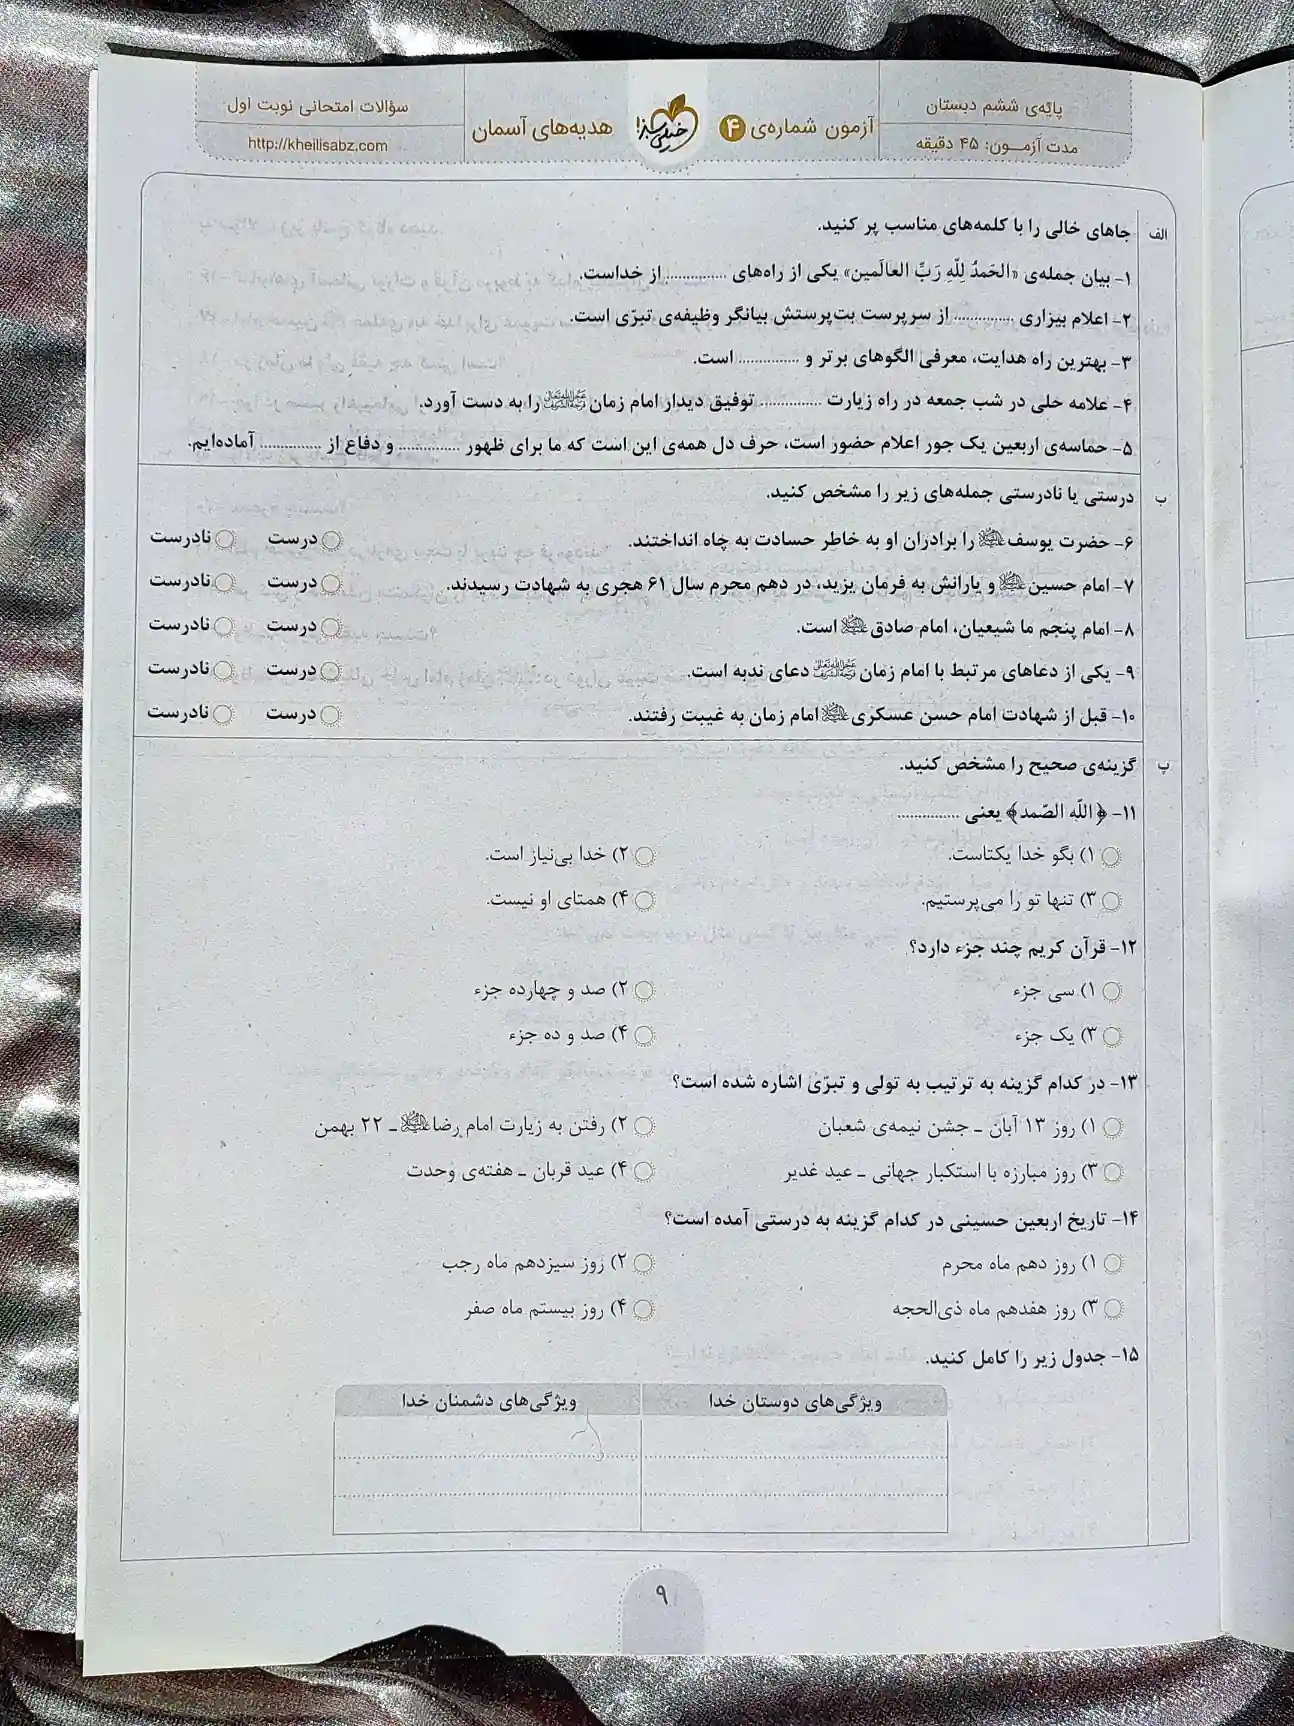 پایه‌ی ششم دبستان
مدت آزمـــون: ۴۵ دقیقه
آزمون شماره‌ی ۴
خیلی سبز
هدیه‌های آسمان
سؤالات امتحانی نوبت اول
http://kheilisabz.com
الف جاهای خالی را با کلمه‌های مناسب پر کنید.
۱- بیان جمله‌ی «الحَمدُ لِلّهِ رَبِّ العالَمین» یکی از راه‌های ............... از خداست.
۲- اعلام بیزاری ............... از سرپرست بت‌پرستش بیانگر وظیفه‌ی تبرّی است.
۳- بهترین راه هدایت، معرفی الگوهای برتر و ............... است.
۴- علامه حلی در شب جمعه در راه زیارت ............... توفیق دیدار امام زمان عجل الله تعالی فرجه الشریف را به دست آورد.
۵- حماسه‌ی اربعین یک جور اعلام حضور است، حرف دل همه‌ی این است که ما برای ظهور ............... و دفاع از ............... آماده‌ایم.
ب درستی یا نادرستی جمله‌های زیر را مشخص کنید.
۶- حضرت یوسف علیه السلام را برادران او به خاطر حسادت به چاه انداختند. درست نادرست
۷- امام حسین علیه السلام و یارانش به فرمان یزید، در دهم محرم سال ۶۱ هجری به شهادت رسیدند. درست نادرست
۸- امام پنجم ما شیعیان، امام صادق علیه السلام است. درست نادرست
۹- یکی از دعاهای مرتبط با امام زمان عجل الله تعالی فرجه الشریف دعای ندبه است. درست نادرست
۱۰- قبل از شهادت امام حسن عسکری علیه السلام امام زمان به غیبت رفتند. درست نادرست
پ گزینه‌ی صحیح را مشخص کنید.
۱۱- ﴿اللّه الصّمد﴾ یعنی ...............
۱) بگو خدا یکتاست. ۲) خدا بی‌نیاز است.
۳) تنها تو را می‌پرستیم. ۴) همتای او نیست.
۱۲- قرآن کریم چند جزء دارد؟
۱) سی جزء ۲) صد و چهارده جزء
۳) یک جزء ۴) صد و ده جزء
۱۳- در کدام گزینه به ترتیب به تولی و تبرّی اشاره شده است؟
۱) روز ۱۳ آبان ـ جشن نیمه‌ی شعبان ۲) رفتن به زیارت امام رضا علیه السلام ـ ۲۲ بهمن
۳) روز مبارزه با استکبار جهانی ـ عید غدیر ۴) عید قربان ـ هفته‌ی وحدت
۱۴- تاریخ اربعین حسینی در کدام گزینه به درستی آمده است؟
۱) روز دهم ماه محرم ۲) روز سیزدهم ماه رجب
۳) روز هفدهم ماه ذی‌الحجه ۴) روز بیستم ماه صفر
۱۵- جدول زیر را کامل کنید.
ویژگی‌های دوستان خدا ویژگی‌های دشمنان خدا
۹